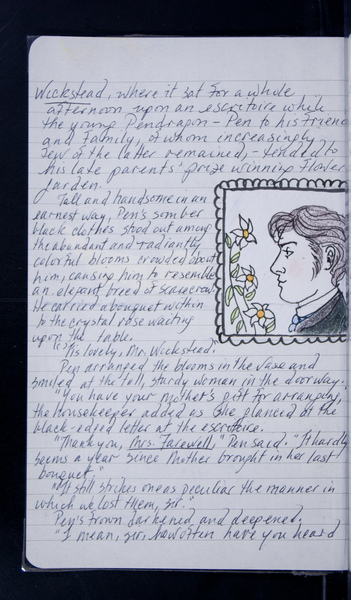 Wickstead, where it sat for a whole
afternoon upon an escritoire while
the young Pendragon – Pen to his friends
and family, of whom increasingly
few of the latter remained, – tended to
his late parents' prize winning flower
garden.
Tall and handsome in an
earnest way, Pen's somber
black clothes stood out among
the abundant and radiantly
colorful blooms crowded about
him, causing him to resemble
an elegant breed of scarecrow.
He carried a bouquet within
to the crystal rose waiting
upon the table.
"It's lovely, Mr. Wickstead."
Pen arranged the blooms in the vase and
smiled at the tall, sturdy woman in the doorway.
"You have your mother's gift for arranging,"
the housekeeper added as she glanced at the
black-edged letter at the escritoire.
"Thank you, Mrs. Farewell," Pen said. "It hardly
seems a year since Mother brought in her last
bouquet."
"It still strikes one as peculiar the manner in
which we lost them, sir."
Pen's frown darkened and deepened.
"I mean, sir, how often have you heard